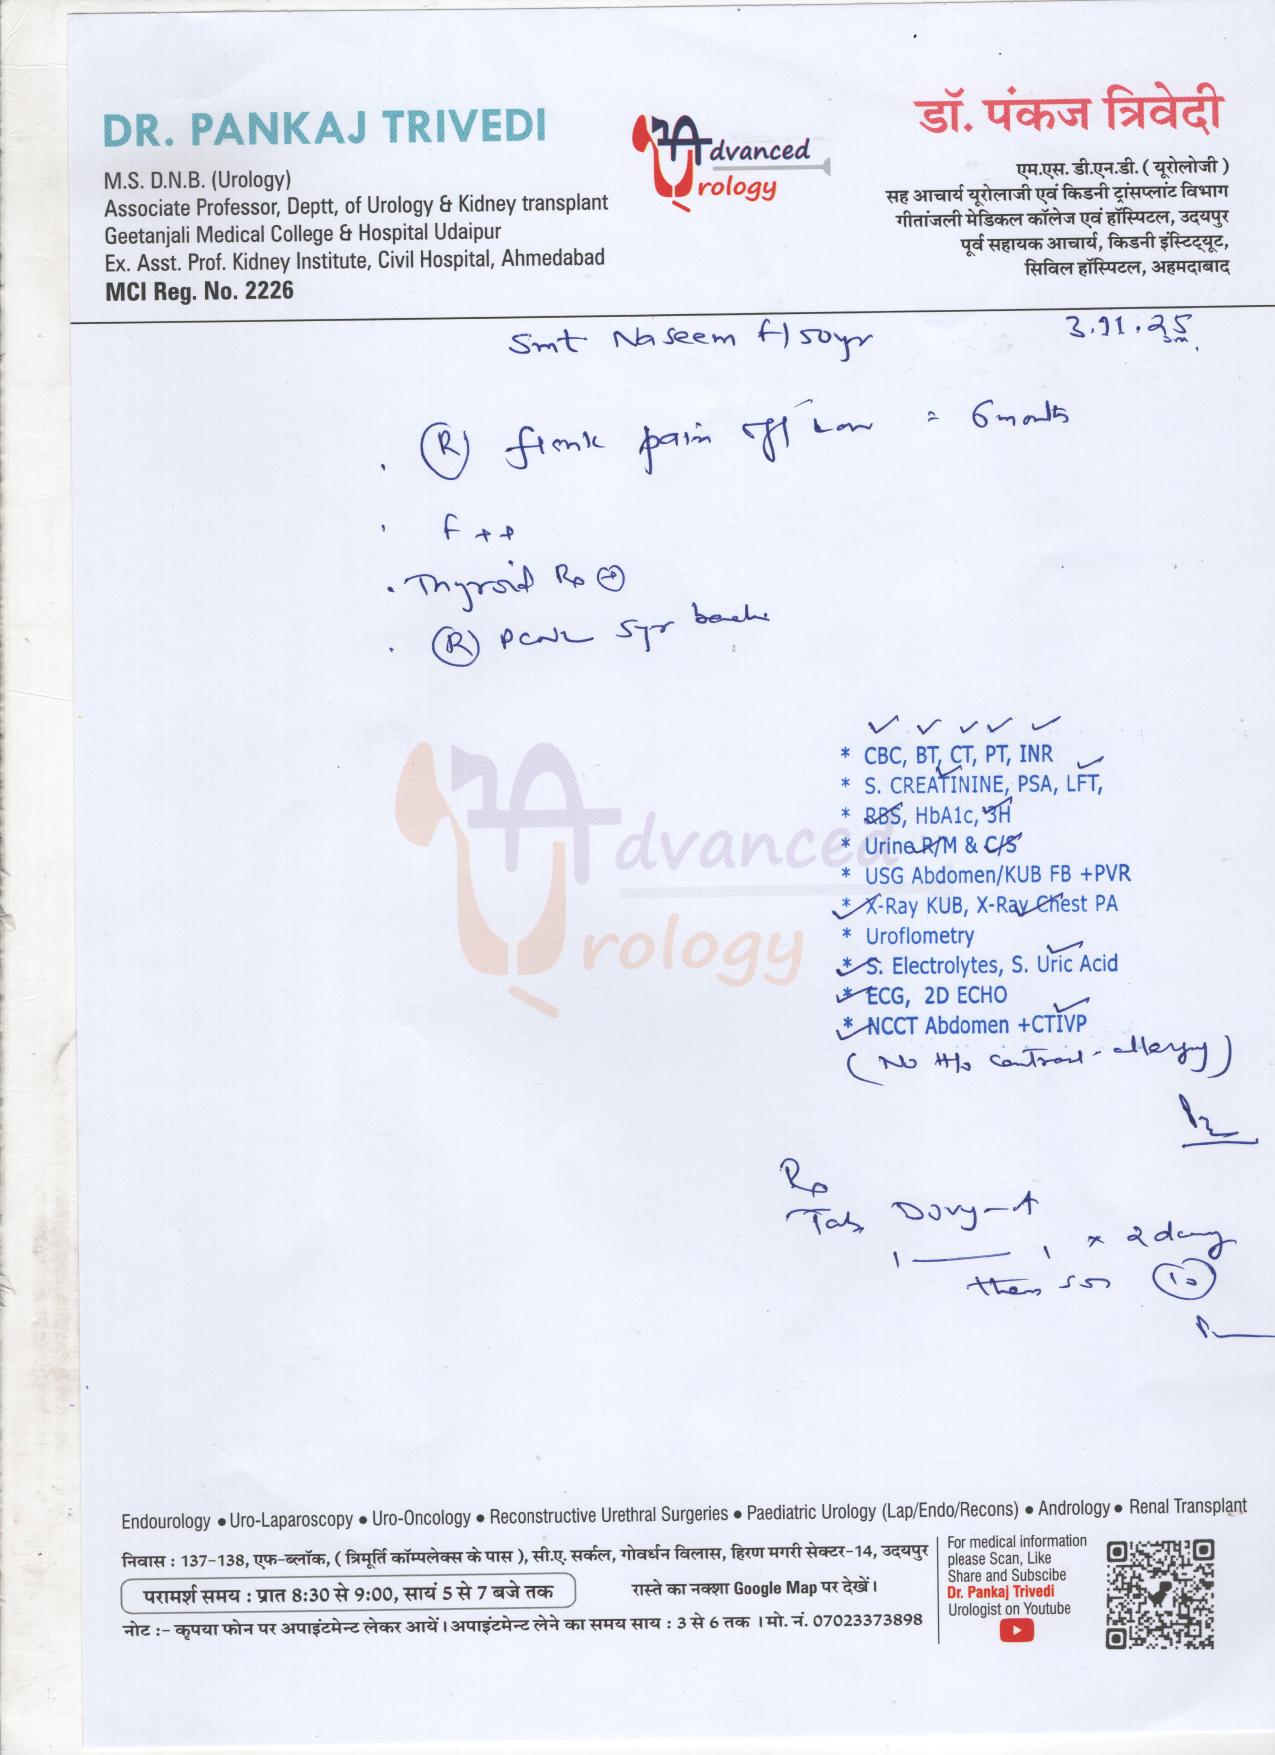 DR. PANKAJ TRIVEDI
M.S. D.N.B. (Urology)
Associate Professor, Deptt, of Urology & Kidney transplant
Geetanjali Medical College & Hospital Udaipur
Ex. Asst. Prof. Kidney Institute, Civil Hospital, Ahmedabad
MCI Reg. No. 2226
Advanced
Urology
डॉ. पंकज त्रिवेदी
एम.एस. डी.एन.डी. ( यूरोलोजी )
सह आचार्य यूरोलाजी एवं किडनी ट्रांसप्लांट विभाग
गीतांजली मेडिकल कॉलेज एवं हॉस्पिटल, उदयपुर
पूर्व सहायक आचार्य, किडनी इंस्टिट्यूट,
सिविल हॉस्पिटल, अहमदाबाद
Smt Naseem f/50yr 3.11.25
(R) flank pain off = 6 months
F ++
Thyroid Rp (+)
(R) PCNL 5yr back
* CBC, BT, CT, PT, INR
* S. CREATININE, PSA, LFT,
* RBS, HbA1c, 3H
* Urine R/M & C/S
* USG Abdomen/KUB FB +PVR
* X-Ray KUB, X-Ray Chest PA
* Uroflometry
* S. Electrolytes, S. Uric Acid
* ECG, 2D ECHO
* NCCT Abdomen +CTIVP
(No H/o contrast - allergy)
Advanced
Urology
Rp
Tab
1 —— 1 × 2 days
then SOS (10)
Endourology ● Uro-Laparoscopy ● Uro-Oncology ● Reconstructive Urethral Surgeries ● Paediatric Urology (Lap/Endo/Recons) ● Andrology ● Renal Transplant
निवास : 137-138, एफ-ब्लॉक, ( त्रिमूर्ति कॉम्पलेक्स के पास ), सी.ए. सर्कल, गोवर्धन विलास, हिरण मगरी सेक्टर-14, उदयपुर
परामर्श समय : प्रात 8:30 से 9:00, सायं 5 से 7 बजे तक
रास्ते का नक्शा Google Map पर देखें।
नोट :- कृपया फोन पर अपाइंटमेन्ट लेकर आयें। अपाइंटमेन्ट लेने का समय साय : 3 से 6 तक । मो. नं. 07023373898
For medical information
please Scan, Like
Share and Subscibe
Dr. Pankaj Trivedi
Urologist on Youtube